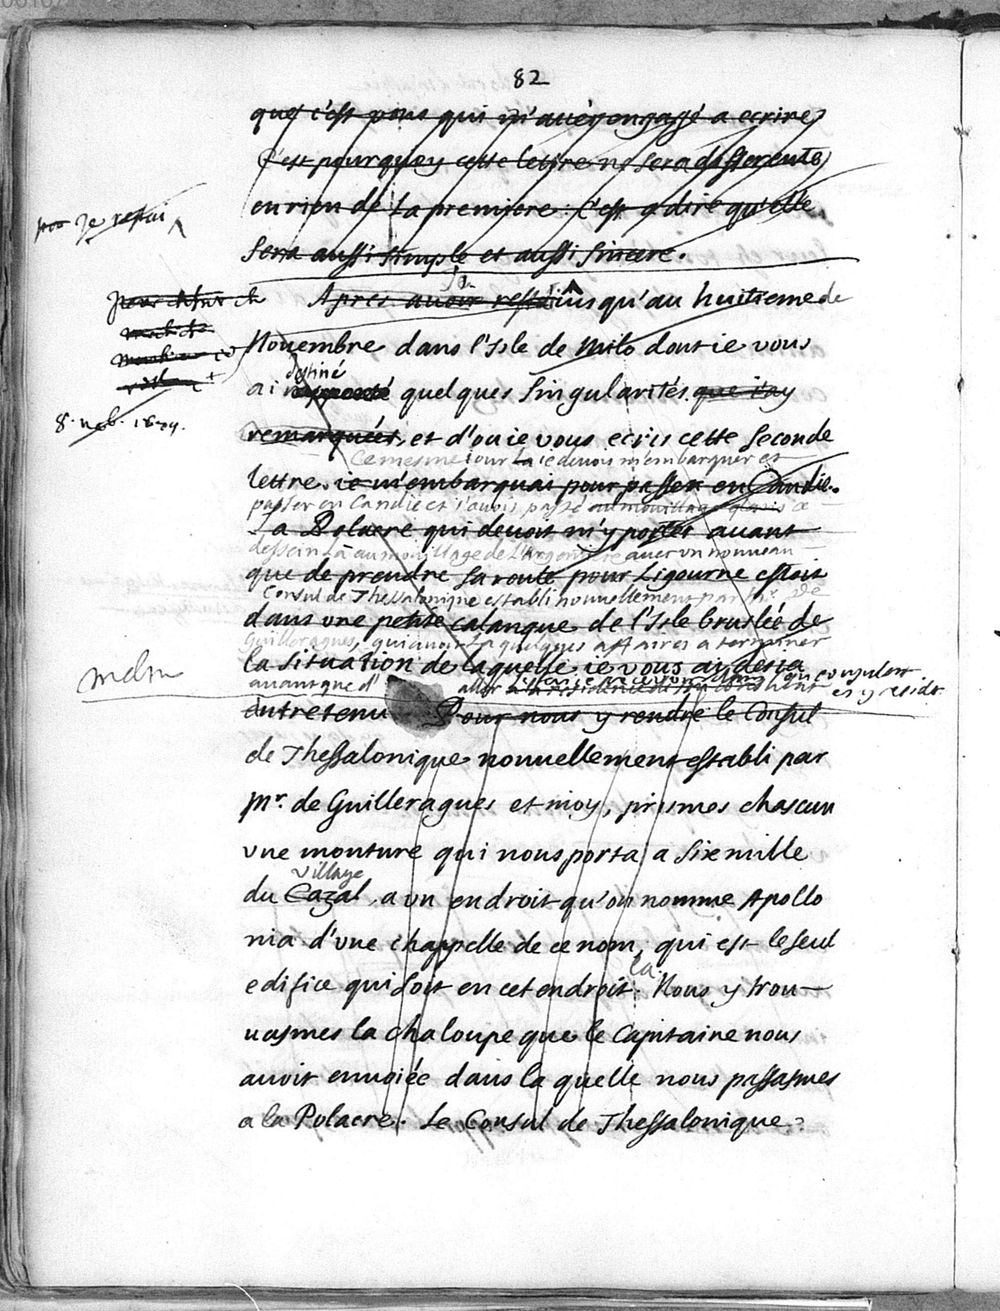 82
que c'est vous qui m'auéz engagé a ecrire,
C'est pourquoy cette lettre ne sera differente,
en rien de la premiere : C'est a dire qu'elle
sera aussi simple et aussi sincere.
Je
Apres auoir resté iusqu'au huitieme de
Nouembre dans l'Isle de Milo dont ie vous
destiné
ai quelques singularités que i'ay
8. nob. 1679.
remarquées, et d'ou ie vous ecris cette seconde
Ce mesme iour la ie deuois m'embarquer et
lettre. ie m'embarquai pour passer en Candie.
passer en Candie et i'auois passé
La Polacre qui deuoit m'y porter auant
dessein la au mouillage de l'Argentiere auec un nouueau
que de prendre sa route pour Ligourne estoit
Consul de Thessalonique establi nouuellement par Mr. de
dans vne petite calanque de l'Isle bruslée de
Guilleragues, qui auoit la quelques affaires a terminer
la situation de laquelle ie vous ay desia
auant que d' aller
entretenu Pour nous y rendre le Consul
de Thessalonique nouuellement establi par
Mr. de Guilleragues et moy, prismes chascun
vne monture qui nous porta a six mille
village
du Cazal, a vn endroit qu'on nomme Apollo
nia d'vne chappelle de ce nom, qui est le seul
la
edifice qui soit en cet endroit. Nous y trou-
uasmes la chaloupe que le Capitaine nous
auoit enuoiée dans la quelle nous passasmes
a la Polacre. Le Consul de Thessalonique